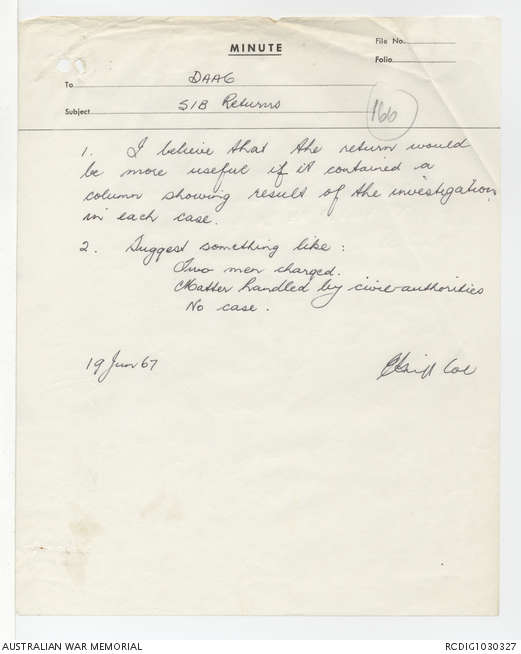 MINUTE
File No.
Folio
To DAAG
Subject SIB Returns
166
1. I believe that the return would
be more useful if it contained a
column showing result of the investigation
in each case.
2. Suggest something like:
Two men charged.
Matter handled by civil authorities
No case.
19 Jun 67
Col
AUSTRALIAN WAR MEMORIAL
RCDIG1030327